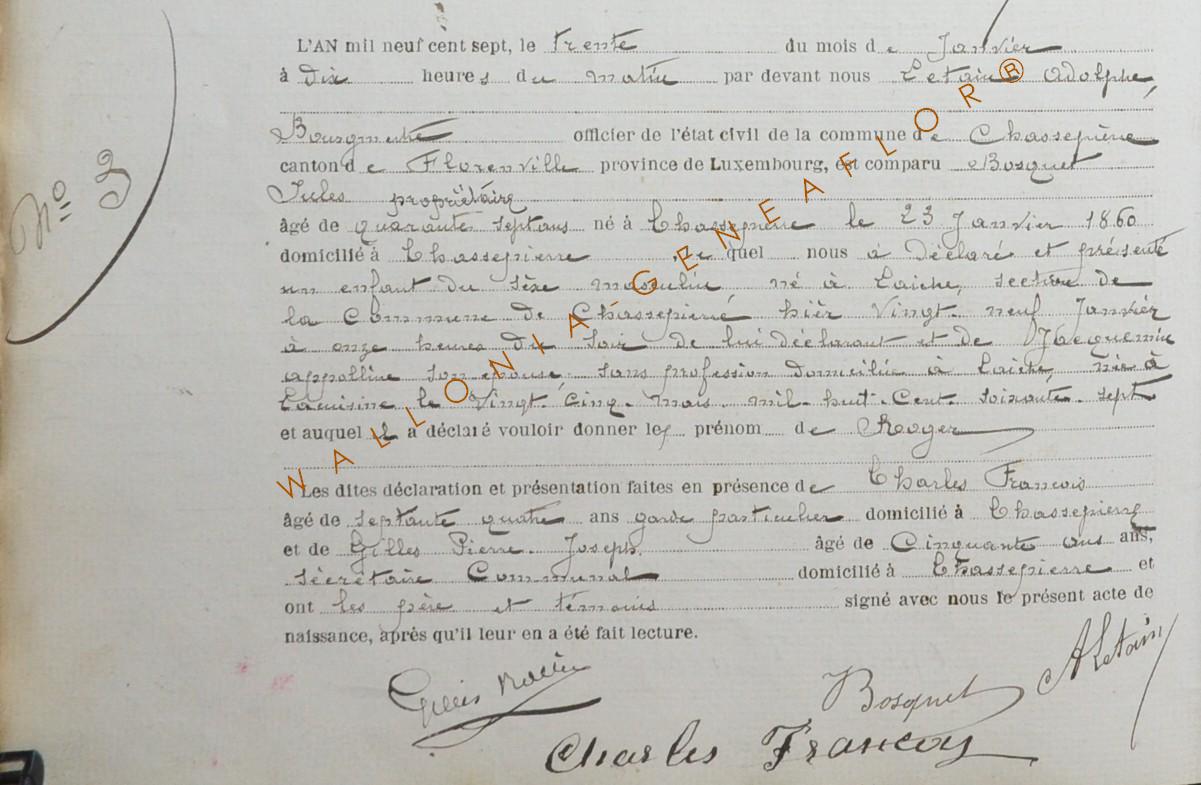 N° 3
L'AN mil neuf cent sept, le trente du mois de Janvier
à dix heures du matin par devant nous Letaine Adolphe,
Bourgmestre officier de l'état civil de la commune de Chassepierre
canton de Florenville province de Luxembourg, est comparu Bosquet
Jules propriétaire
âgé de quarante sept ans né à Chassepierre le 23 Janvier 1860
domicilié à Chassepierre, Le quel nous a déclaré et présenté
un enfant du sèxe masculin, né à Laiche, section de
la Commune de Chassepierre hièr Vingt neuf Janvièr
à onze heures du soir de lui déclarant et de Jacquemin
Appolline son epouse, sans profession domicilié à Laiche, née à
Lacuisine le Vingt. Cinq. Mars mil huit. Cent. soixante. sept
et auquel il a déclaré vouloir donner les prénom de Roger
Les dites déclaration et présentation faites en présence de Charles François
âgé de septante quatre ans garde particulier domicilié à Chassepierre
et de Gilles Pierre Joseph. âgé de Cinquante ans ans,
sècrètaire Communal domicilié à Chassepierre et
ont les père et témoins signé avec nous le présent acte de
naissance, après qu'il leur en a été fait lecture.
Bosquet A Letain
Charles Francoy
WALLONIA GENEAFLOR®